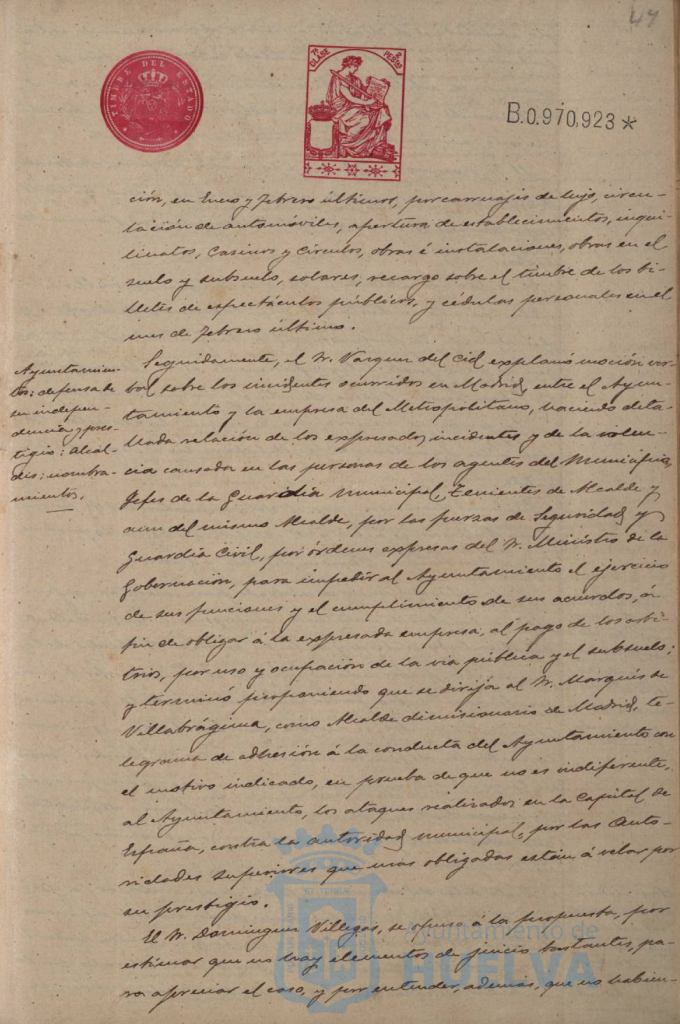 47
TIMBRE DEL ESTADO
7ª CLASE
2 PESETAS
B.0.970,923*
ción, en Enero y Febrero últimos, por carruajes de lujo, circu-
lación de automóviles, apertura de establecimientos, inqui-
linatos, Casinos y Círculos, obras é instalaciones, obras en el
suelo y subsuelo, solares, recargo sobre el timbre de los bi-
lletes de espectáculos públicos, y cédulas personales en el
mes de Febrero último.
Ayuntamien-
tos: defensa de
su indepen-
dencia y pres-
tigio: Alcal-
des: nombra-
mientos.
Seguidamente, el Sr. Vazquez del Cid explanó moción ver-
bal sobre los incidentes ocurridos en Madrid, entre el Ayun-
tamiento y la empresa del Metropolitano, haciendo deta-
llada relación de los expresados incidentes y de la violen-
cia causada en las personas de los agentes del Municipio,
Jefes de la Guardia municipal, Tenientes de Alcalde y
aun del mismo Alcalde, por las fuerzas de Seguridad y
Guardia Civil, por órdenes expresas del Sr. Ministro de la
Gobernación, para impedir al Ayuntamiento el ejercicio
de sus funciones y el cumplimiento de sus acuerdos, á
fin de obligar á la expresada empresa, al pago de los arbi-
trios, por uso y ocupación de la via pública y el subsuelo;
y terminó proponiendo que se dirija al Sr. Marqués de
Villabrágima, como Alcalde dimisionario de Madrid, te-
legrama de adhesión á la conducta del Ayuntamiento con
el motivo indicado, en prueba de que no es indiferente,
al Ayuntamiento, los ataques realizados en la Capital de
España, contra la autoridad municipal, por las Auto-
ridades superiores que mas obligadas están á velar por
su prestigio.
El Sr. Dominguez Villegas, se opuso á la propuesta, por
estimar que no hay elementos de juicio bastantes, pa-
ra apreciar el caso, y por entender, además, que no habien-
Ayuntamiento de
HUELVA